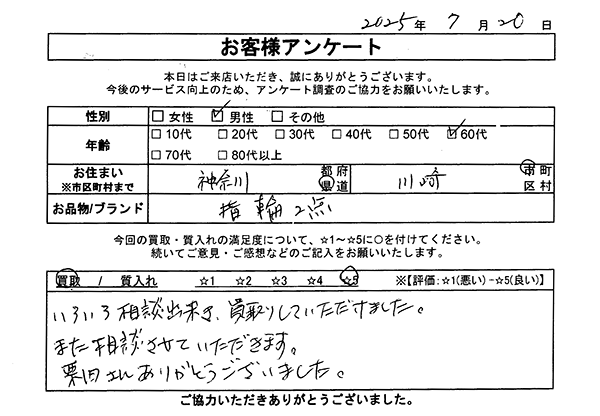 2025年 7月 20日
お客様アンケート
本日はご来店いただき、誠にありがとうございます。
今後のサービス向上のため、アンケート調査のご協力をお願いいたします。
性別 □女性 ☑男性 □その他
年齢 □10代 □20代 □30代 □40代 □50代 ☑60代
□70代 □80代以上
お住まい
※市区町村まで
神奈川 都府県道 川崎 市町区村
お品物/ブランド 指輪2点
今回の買取・質入れの満足度について、☆1～☆5に○を付けてください。
続いてご意見・ご感想などのご記入をお願いいたします。
買取 / 質入れ ☆1 ☆2 ☆3 ☆4 ☆5 ※【評価:☆1(悪い)-☆5(良い)】
いろいろ相談出来き、買取りしていただけました。
また相談させていただきます。
栗田さんありがとうございました。
ご協力いただきありがとうございました。